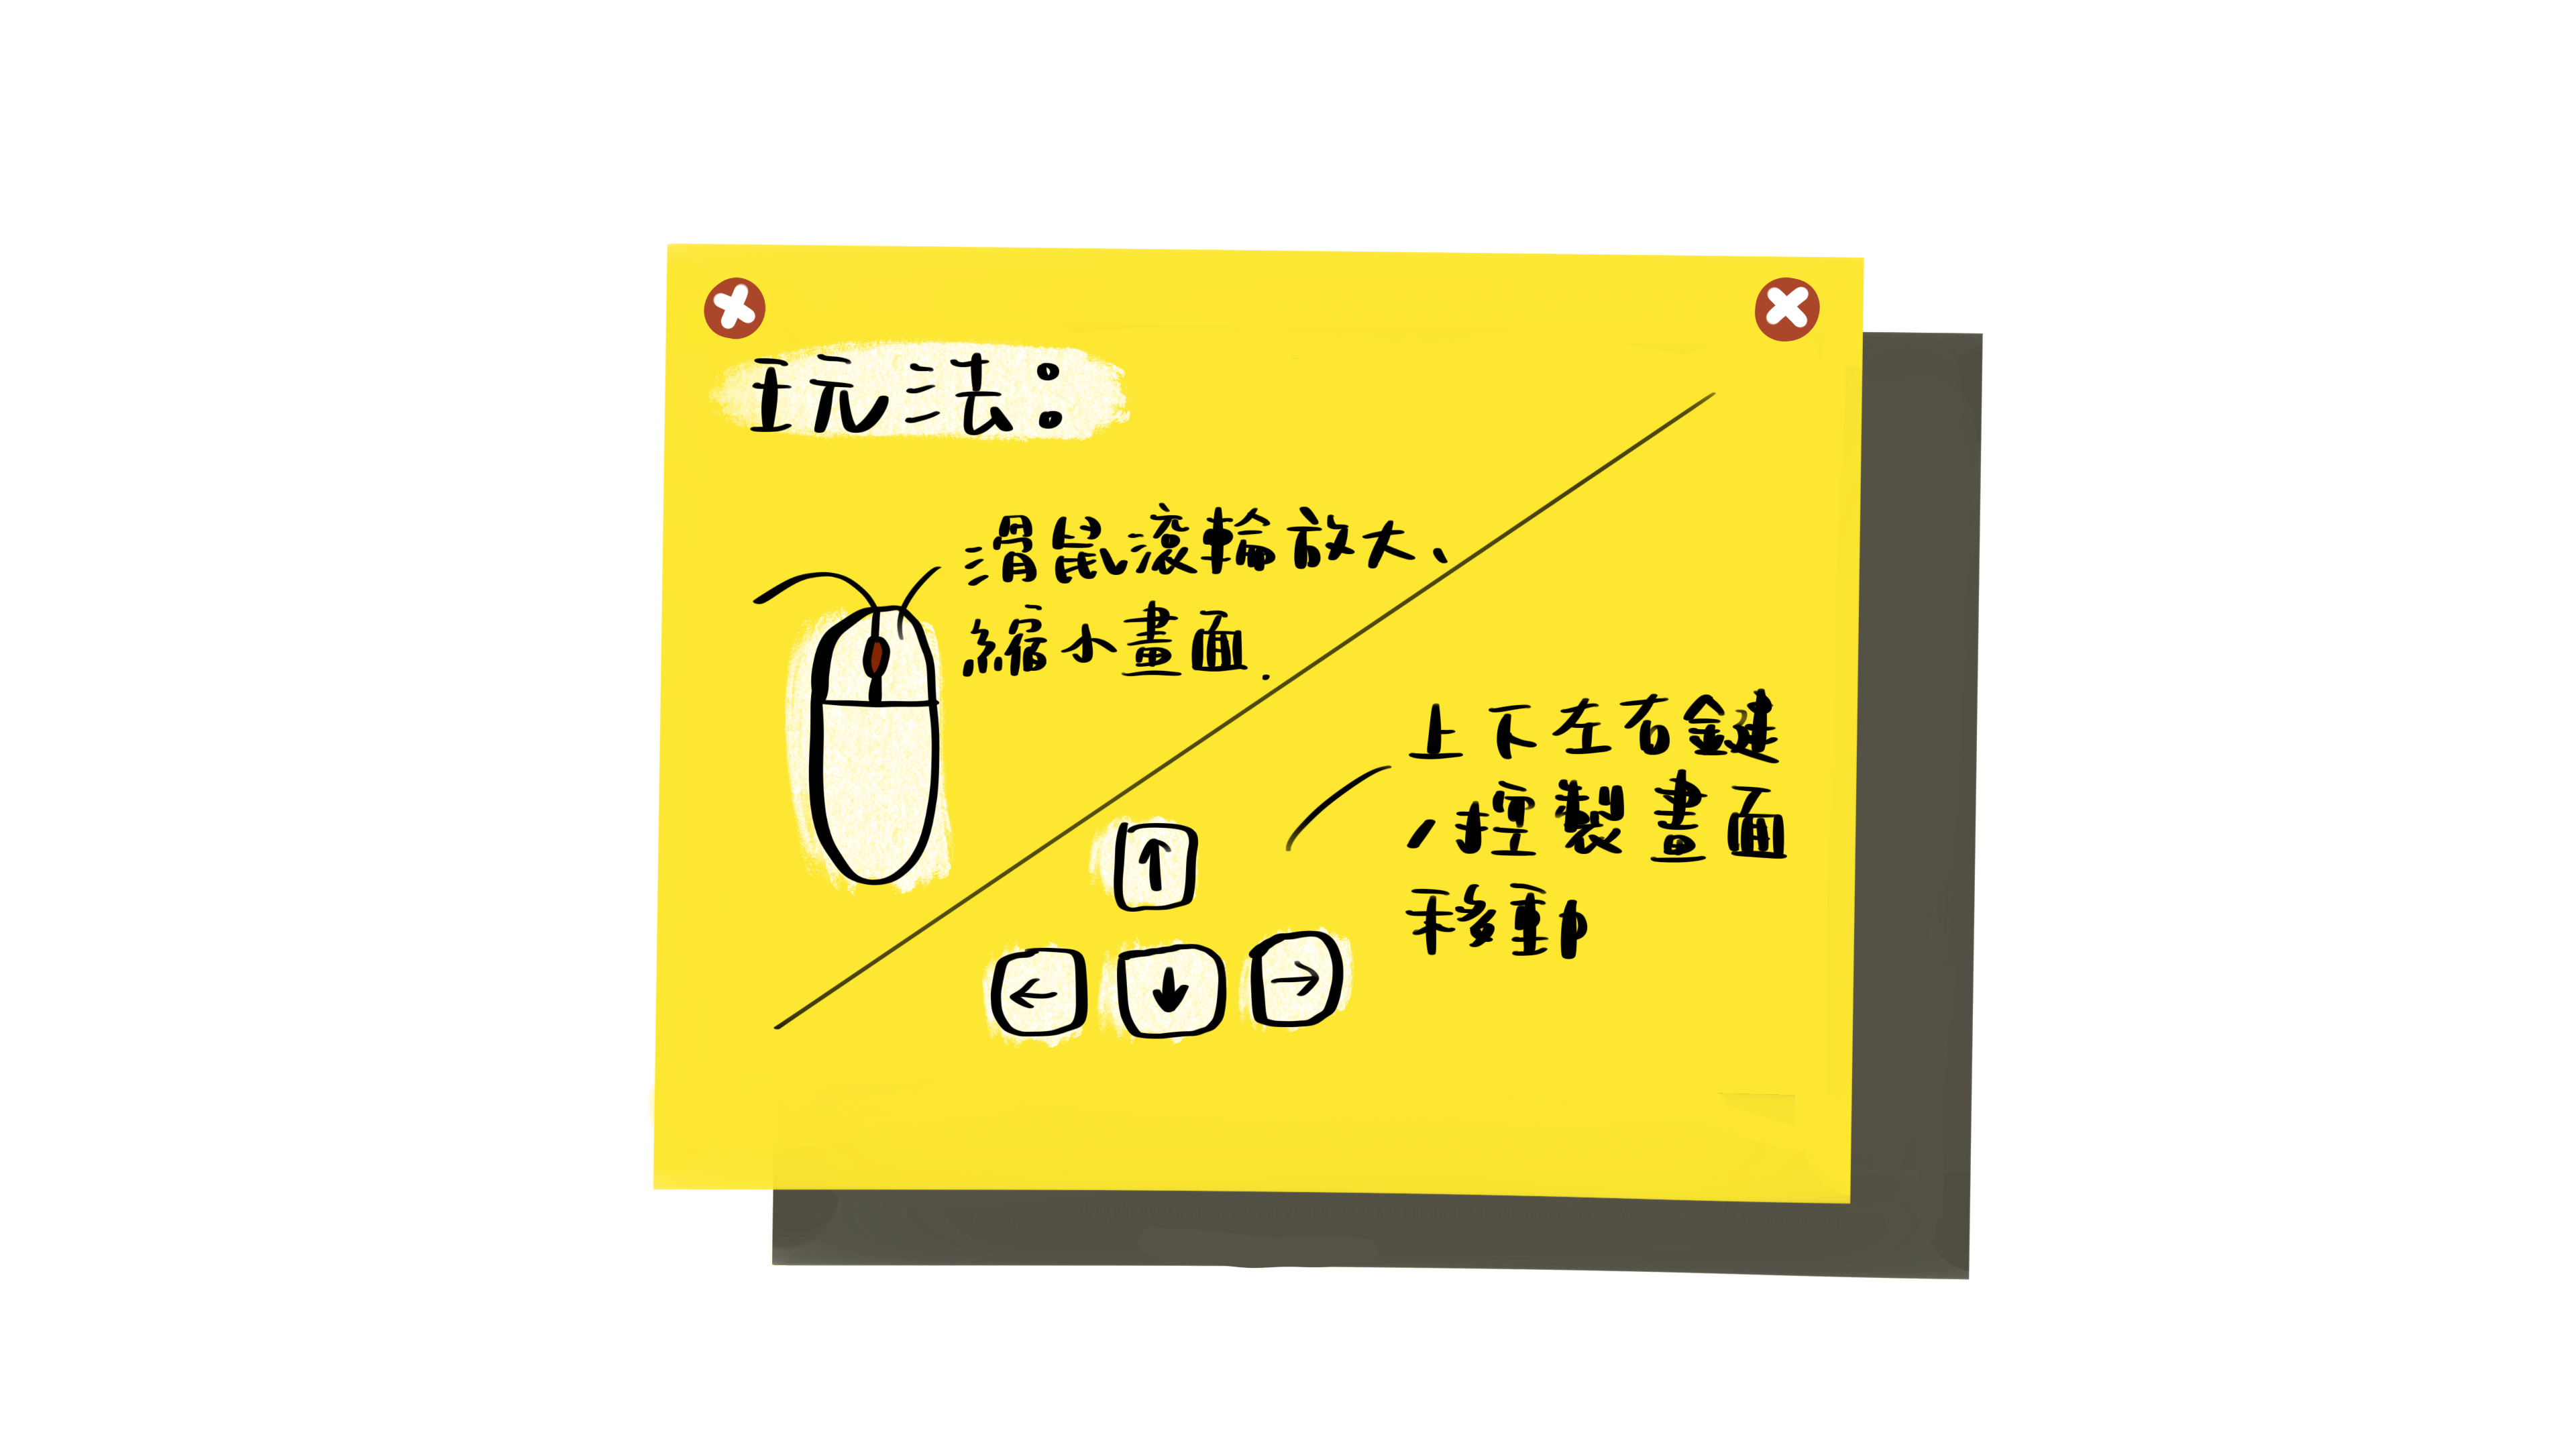 玩法：
滑鼠滾輪放大、
縮小畫面.
上下左右鍵
控製畫面
移動
↑
← ↓ →